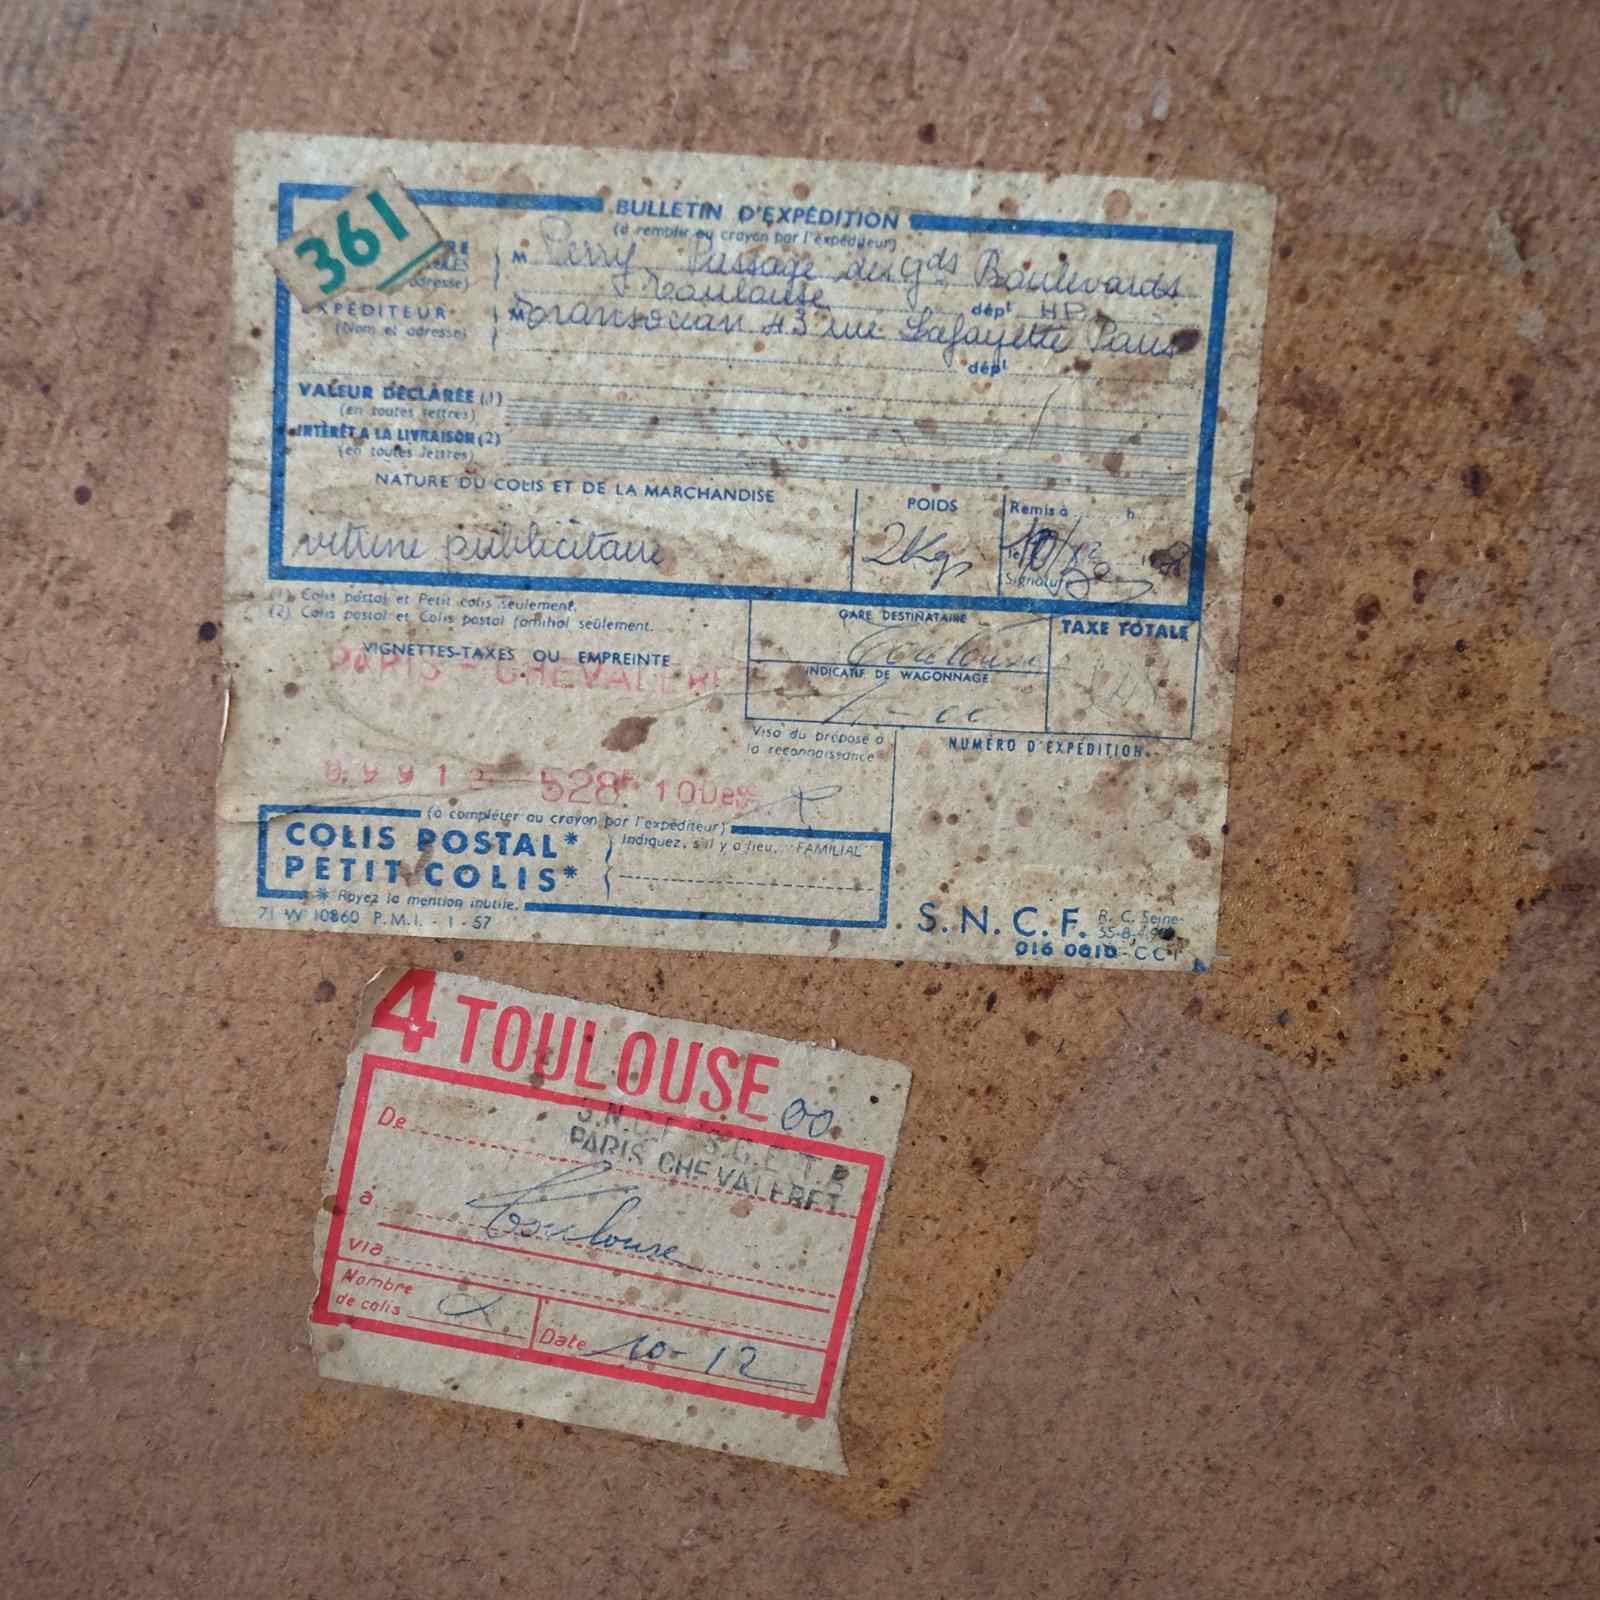 361
BULLETIN D'EXPÉDITION
(à remplir au crayon par l'expéditeur)
M Perry Passage des gds Boulevards
adresse)
Toulouse dépt HP.
EXPÉDITEUR M Transocean 43 rue Lafayette Paris
(Nom et adresse)
dépt
VALEUR DÉCLARÉE (1)
(en toutes lettres)
INTÉRÊT A LA LIVRAISON (2)
(en toutes lettres)
NATURE DU COLIS ET DE LA MARCHANDISE
POIDS
Remis à h
vitrine publicitaire
2Kgs
le 10/12
Signature
(1) Colis postal et Petit colis seulement.
(2) Colis postal et Colis postal familial seulement.
GARE DESTINATAIRE
Toulouse
TAXE TOTALE
VIGNETTES-TAXES OU EMPREINTE
PARIS - CHEVALERET
INDICATIF DE WAGONNAGE
Visa du préposé à
la reconnaissance
NUMÉRO D'EXPÉDITION
528F 10De
(à compléter au crayon par l'expéditeur)
COLIS POSTAL*
PETIT COLIS*
Indiquez, s'il y a lieu, "FAMILIAL"
* Rayez la mention inutile.
71 W 10860 P.M.I. - 1 - 57
S.N.C.F. R. C. Seine
016 0610
4 TOULOUSE 00
De S.N.C.F. S.G.E.T.
PARIS CHEVALERET
à Toulouse
via
Nombre
de colis
Date 10-12